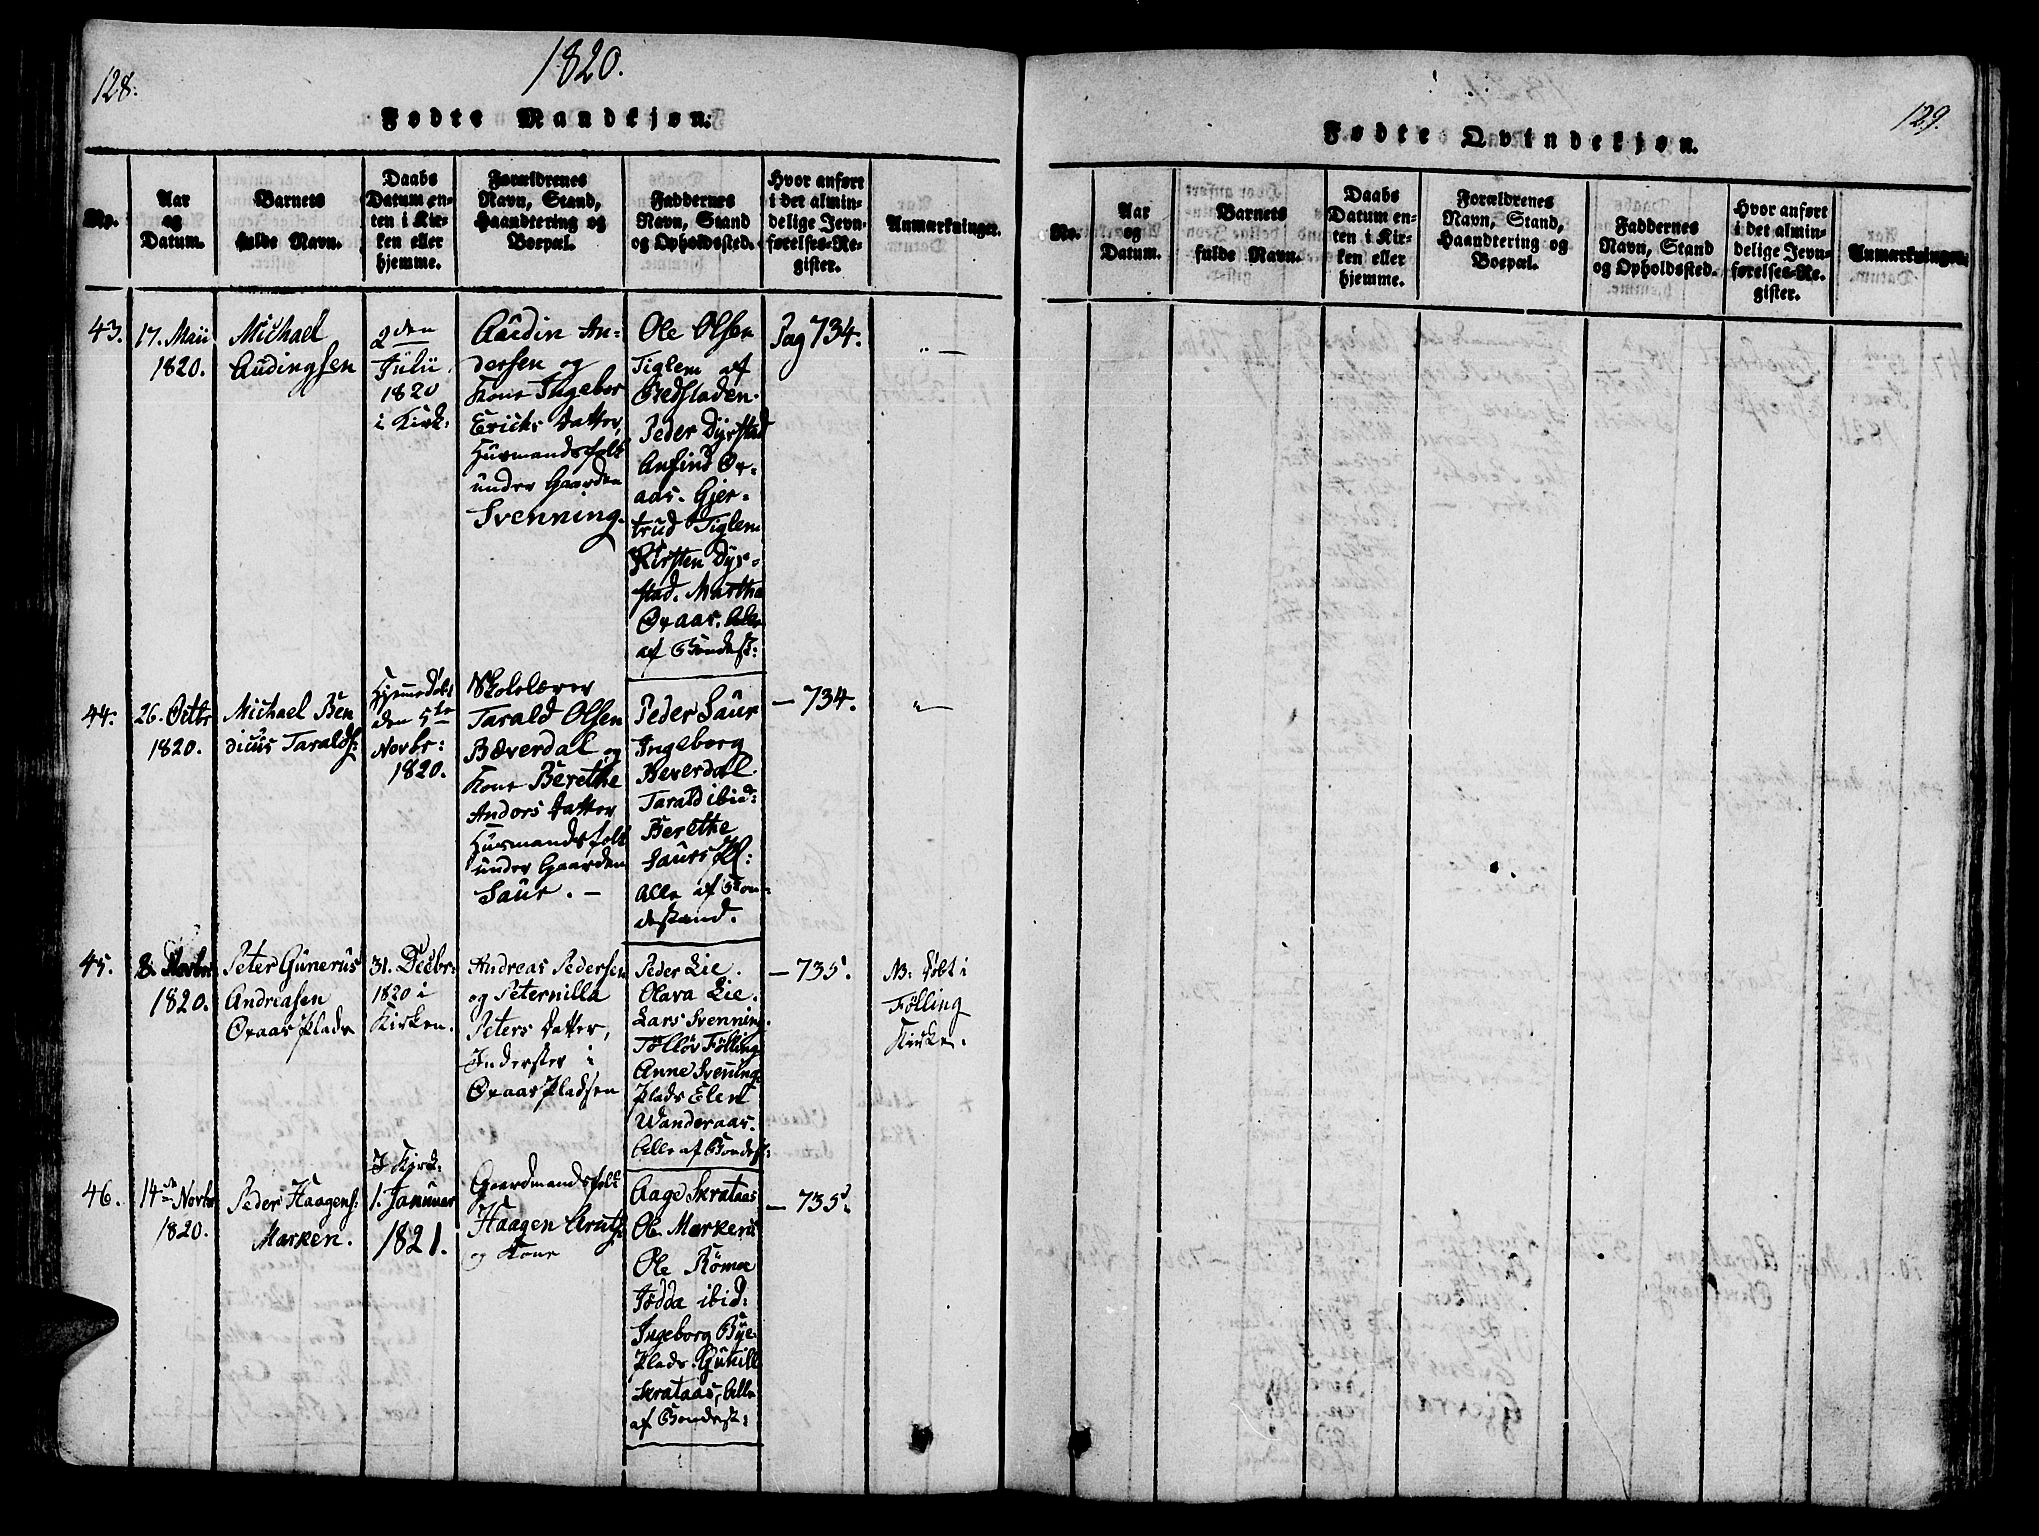 128.
1820.
Fødte Mandkjøn.
No.
Aar
og
Datum.
Barnets
fulde Navn.
Daabs
Datum en-
ten i Kir-
ken eller
hjemme.
Forældrenes
Navn, Stand,
Haandtering og
Boepæl.
Faddernes
Navn, Stand
og Opholdssted.
Hvor anført
i det almin-
delige Jevn-
førelses-Re-
gister.
Anmærkninger.
43.
17. Maii
1820.
Michael
Audingsen
2den
Julii
1820
i Kirk:
Audin An-
dersen og
Kone Ingebor
Erichs Datter,
Huusmandsfolk
under Gaarden
Svenning.
Ole Olsen
Tiglem af
Bedstaden.
Peder Dyrstad
Anfind Ør-
aas. Gjer-
trud Tiglem
Kirsten Dyr-
stad. Martha
Øraas. Alle
af Bondest:
Pag 734.
" —
44.
26. Octbr
1820.
Michael Ben
dicus Taralds:
Hjemmedøbt
den 5te
Novbr:
1820.
Skolelærer
Tarald Olsen
Bæverdal og
Kone Berethe
Anders Datter
Huusmandsfolk
under Gaarden
Saur. —
Peder Saur
Ingeborg
Beverdal.
Tarald ibid:
Berethe
Saurs Pl:
alle af Bon-
destand.
— 734.
" —
45.
8. Novbr
1820.
Peter Gunerus
Andreasen
Øraas Plads
31. Decbr:
1820 i
Kirken.
Andreas Pedersen
og Peternilla
Peters Datter,
Inderster i
Øraas Pladsen
Peder Lie.
Olava Lie.
Lars Svenning.
Tølløv Følling
Anne Svenning
Plads Elen
Wanderaas.
Alle af Bondest:
— 735.
NB: døbt i
Følling
Kirke.
46.
14de Novbr
1820.
Peder Haagens:
Marken.
I Kirk:
1. Januar
1821.
Gaardmandsfolk
Haagen Arnts:
og Kone
Aage Skrataas
Ole Markens
Ole Rømoe
Jødda ibid:
Ingeborg Bye
Plads. Gunild
Skrataas, Alle
af Bondest:
— 735.
129.
Fødte Qvindekjøn.
No.
Aar
og
Datum.
Barnets
fulde Navn.
Daabs
Datum en-
ten i Kir-
ken eller
hjemme.
Forældrenes
Navn, Stand,
Haandtering og
Boepæl.
Faddernes
Navn, Stand
og Opholdssted.
Hvor anført
i det almin-
delige Jevn-
førelses-Re-
gister.
Anmærkninger.